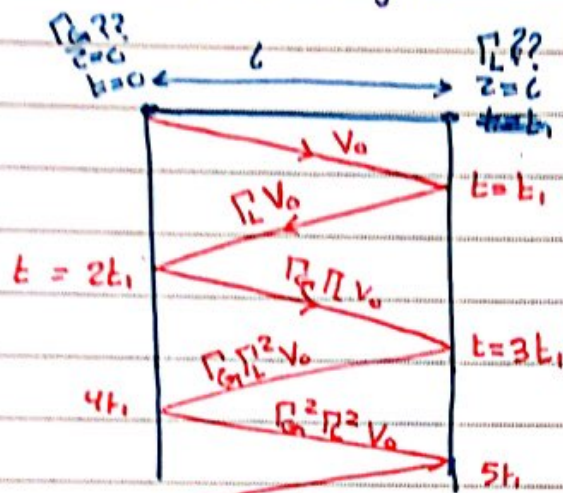 Γ_G ?? Γ_L ??
z=0 z=l
t=0 l
V₀
t=t₁
Γ_L V₀
t = 2t₁
Γ_G Γ_L V₀
t=3t₁
Γ_G Γ_L² V₀
4t₁
Γ_G² Γ_L² V₀
5t₁